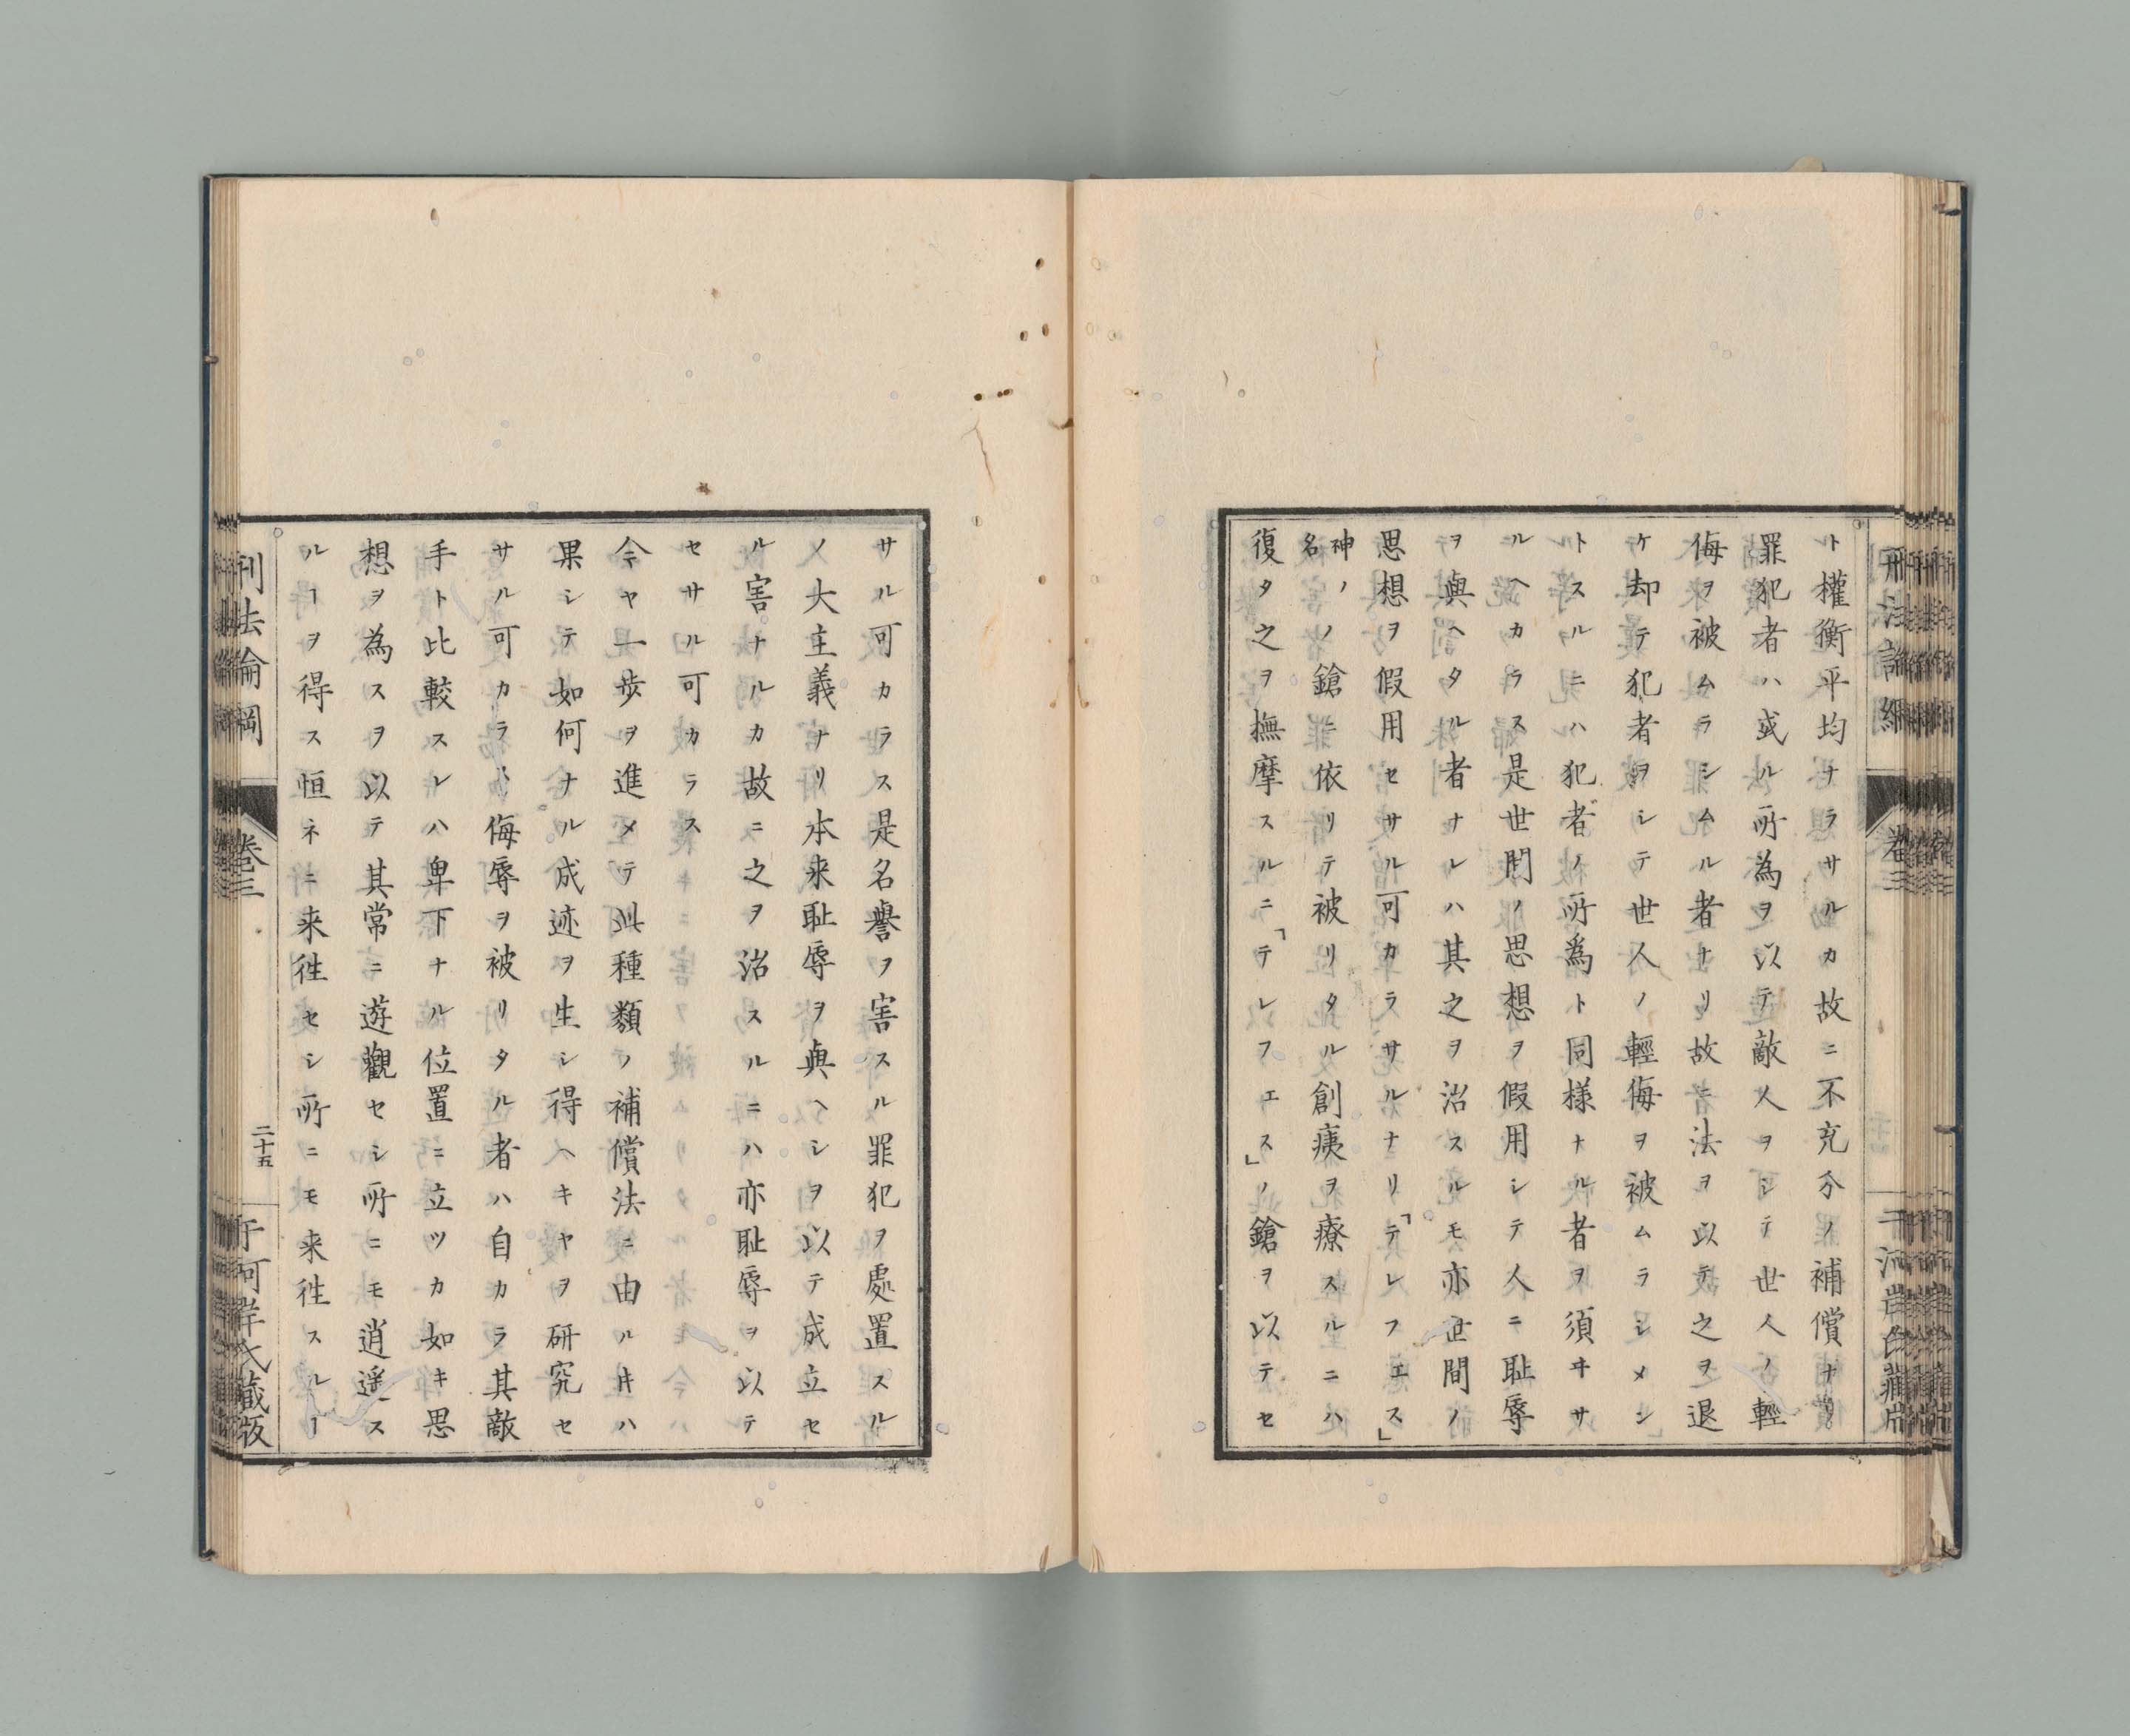 ト權衡平均ナラサルカ故ニ不充分ノ補償ナリ
罪犯者ハ或ル所為ヲ以テ敵人ヲシテ世人ノ輕
侮ヲ被ムラシムル者ナリ故ニ法ヲ以テ之ヲ退
ケ却テ犯者ヲシテ世人ノ輕侮ヲ被ムラシメン
トスルニハ犯者ノ所爲ト同様ナル者ヲ須ヰサ
ルヘカラス是世間ノ思想ヲ假用シテ人ニ耻辱
ヲ與ヘタル者ナレハ其之ヲ治スルモ亦世間ノ
思想ヲ假用セサル可カラサルナリ「テレフエス」
神ノ名ノ鎗ニ依リテ被リタル創痍ヲ療スルニハ
復タ之ヲ撫摩スルニ「テレフエス」ノ鎗ヲ以テセ
サル可カラス是名譽ヲ害スル罪犯ヲ處置スル
ノ大主義ナリ本来耻辱ヲ與ヘシヲ以テ成立セ
ル害ナルカ故ニ之ヲ治スルニハ亦耻辱ヲ以テ
セサル可カラス
今ヤ一歩ヲ進メテ此種類ノ補償法ニ由ルキハ
果シテ如何ナル成迹ヲ生シ得ヘキヤヲ研究セ
サル可カラス侮辱ヲ被リタル者ハ自カラ其敵
手ト比較スレハ卑下ナル位置ニ立ツカ如キ思
想ヲ為スヲ以テ其常ニ遊觀セシ所ニモ逍遥ス
ルヿヲ得ス恒ネニ来徃セシ所ニモ来徃スルヿ
刑法論綱
卷三
二十五